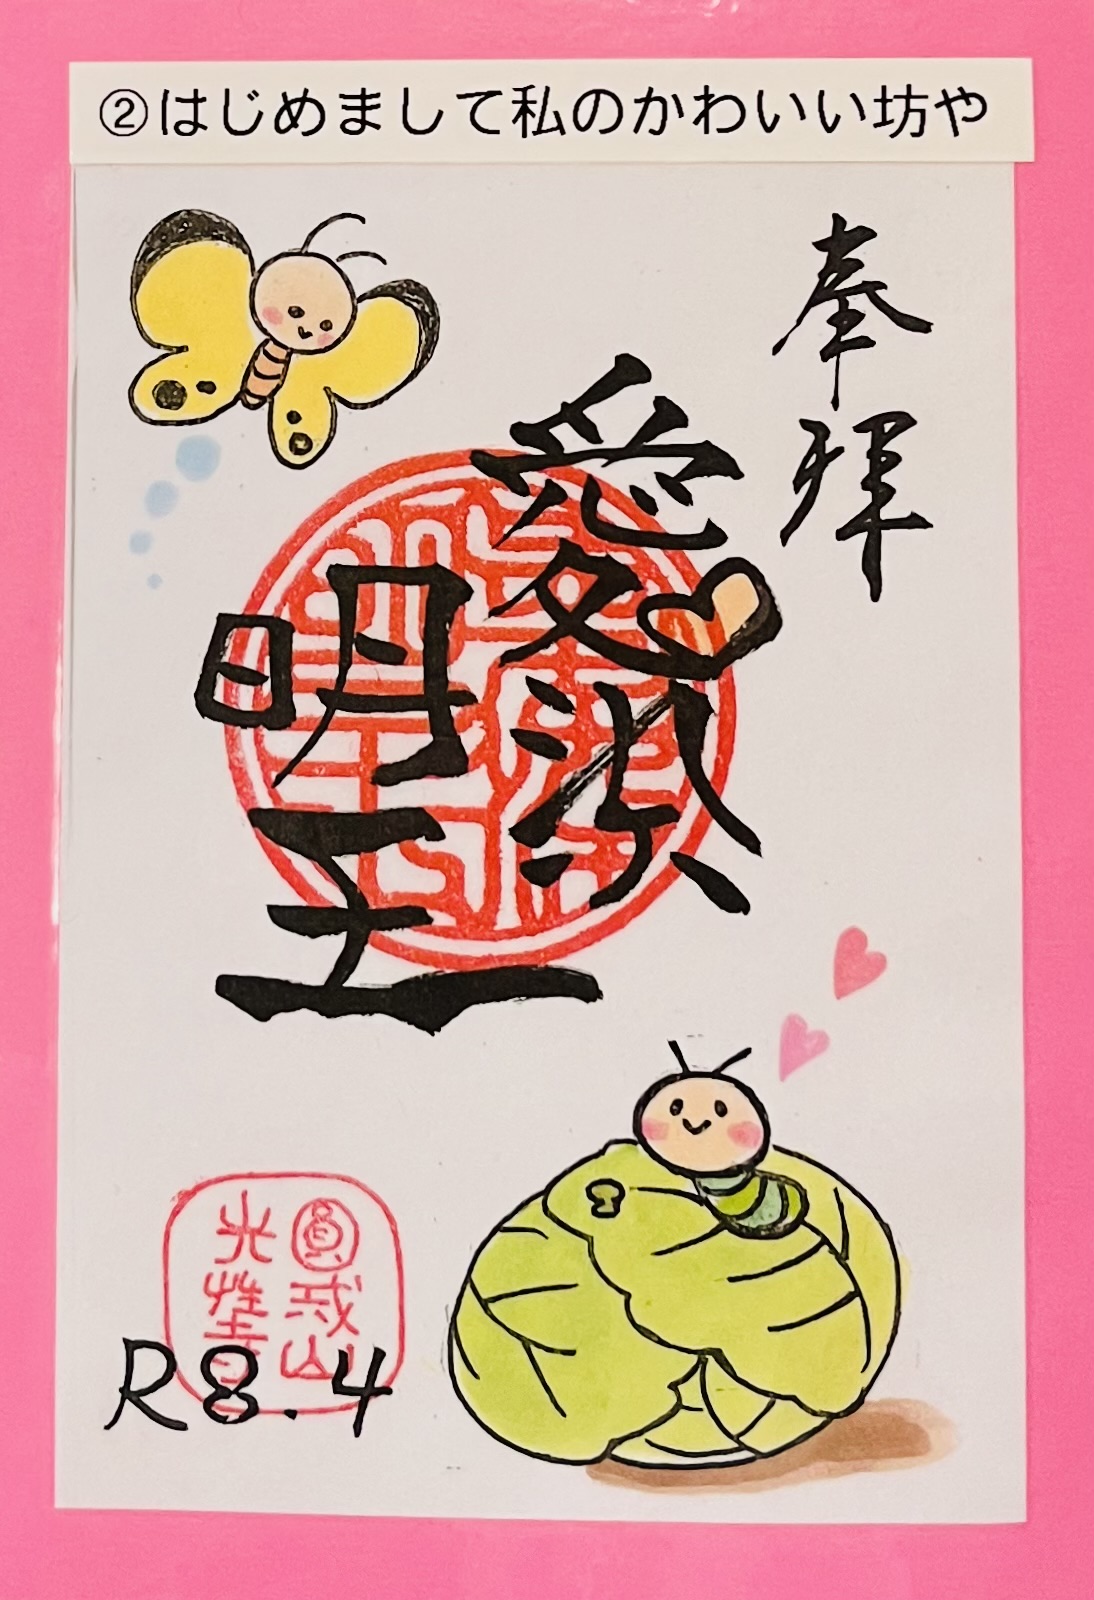 ②はじめまして私のかわいい坊や
奉拝
愛染
明王
圓戒山
光性寺
R8.4